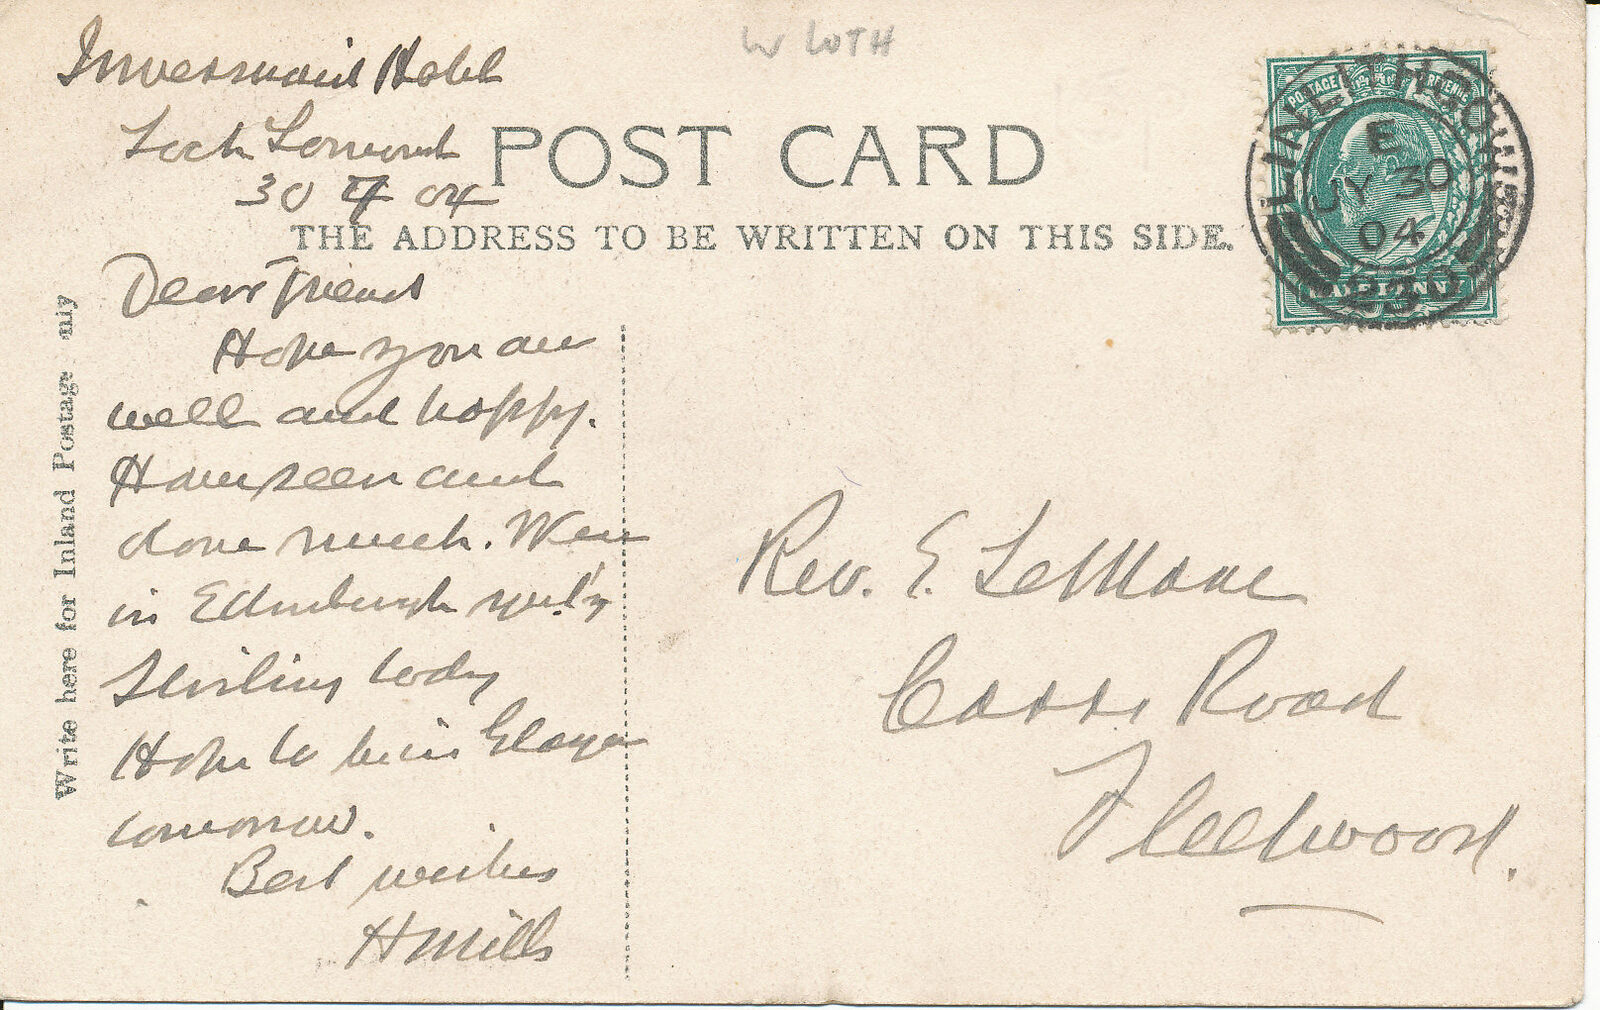 W LOTH
Inversnaid Hotel
Loch Lomond
30 7 04
POST CARD
THE ADDRESS TO BE WRITTEN ON THIS SIDE.
POSTAGE REVENUE
HALFPENNY
LINLITHGOW
E
JY 30
04
Write here for Inland Postage nly
Dear Friend
Hope you are
well and happy.
Have seen and
done much. Were
in Edinburgh yest'y
Stirling today
Hope to be in Glasgow
tomorrow.
Best wishes
H Mills
Rev. E. LeMare
Road
Fleetwood.